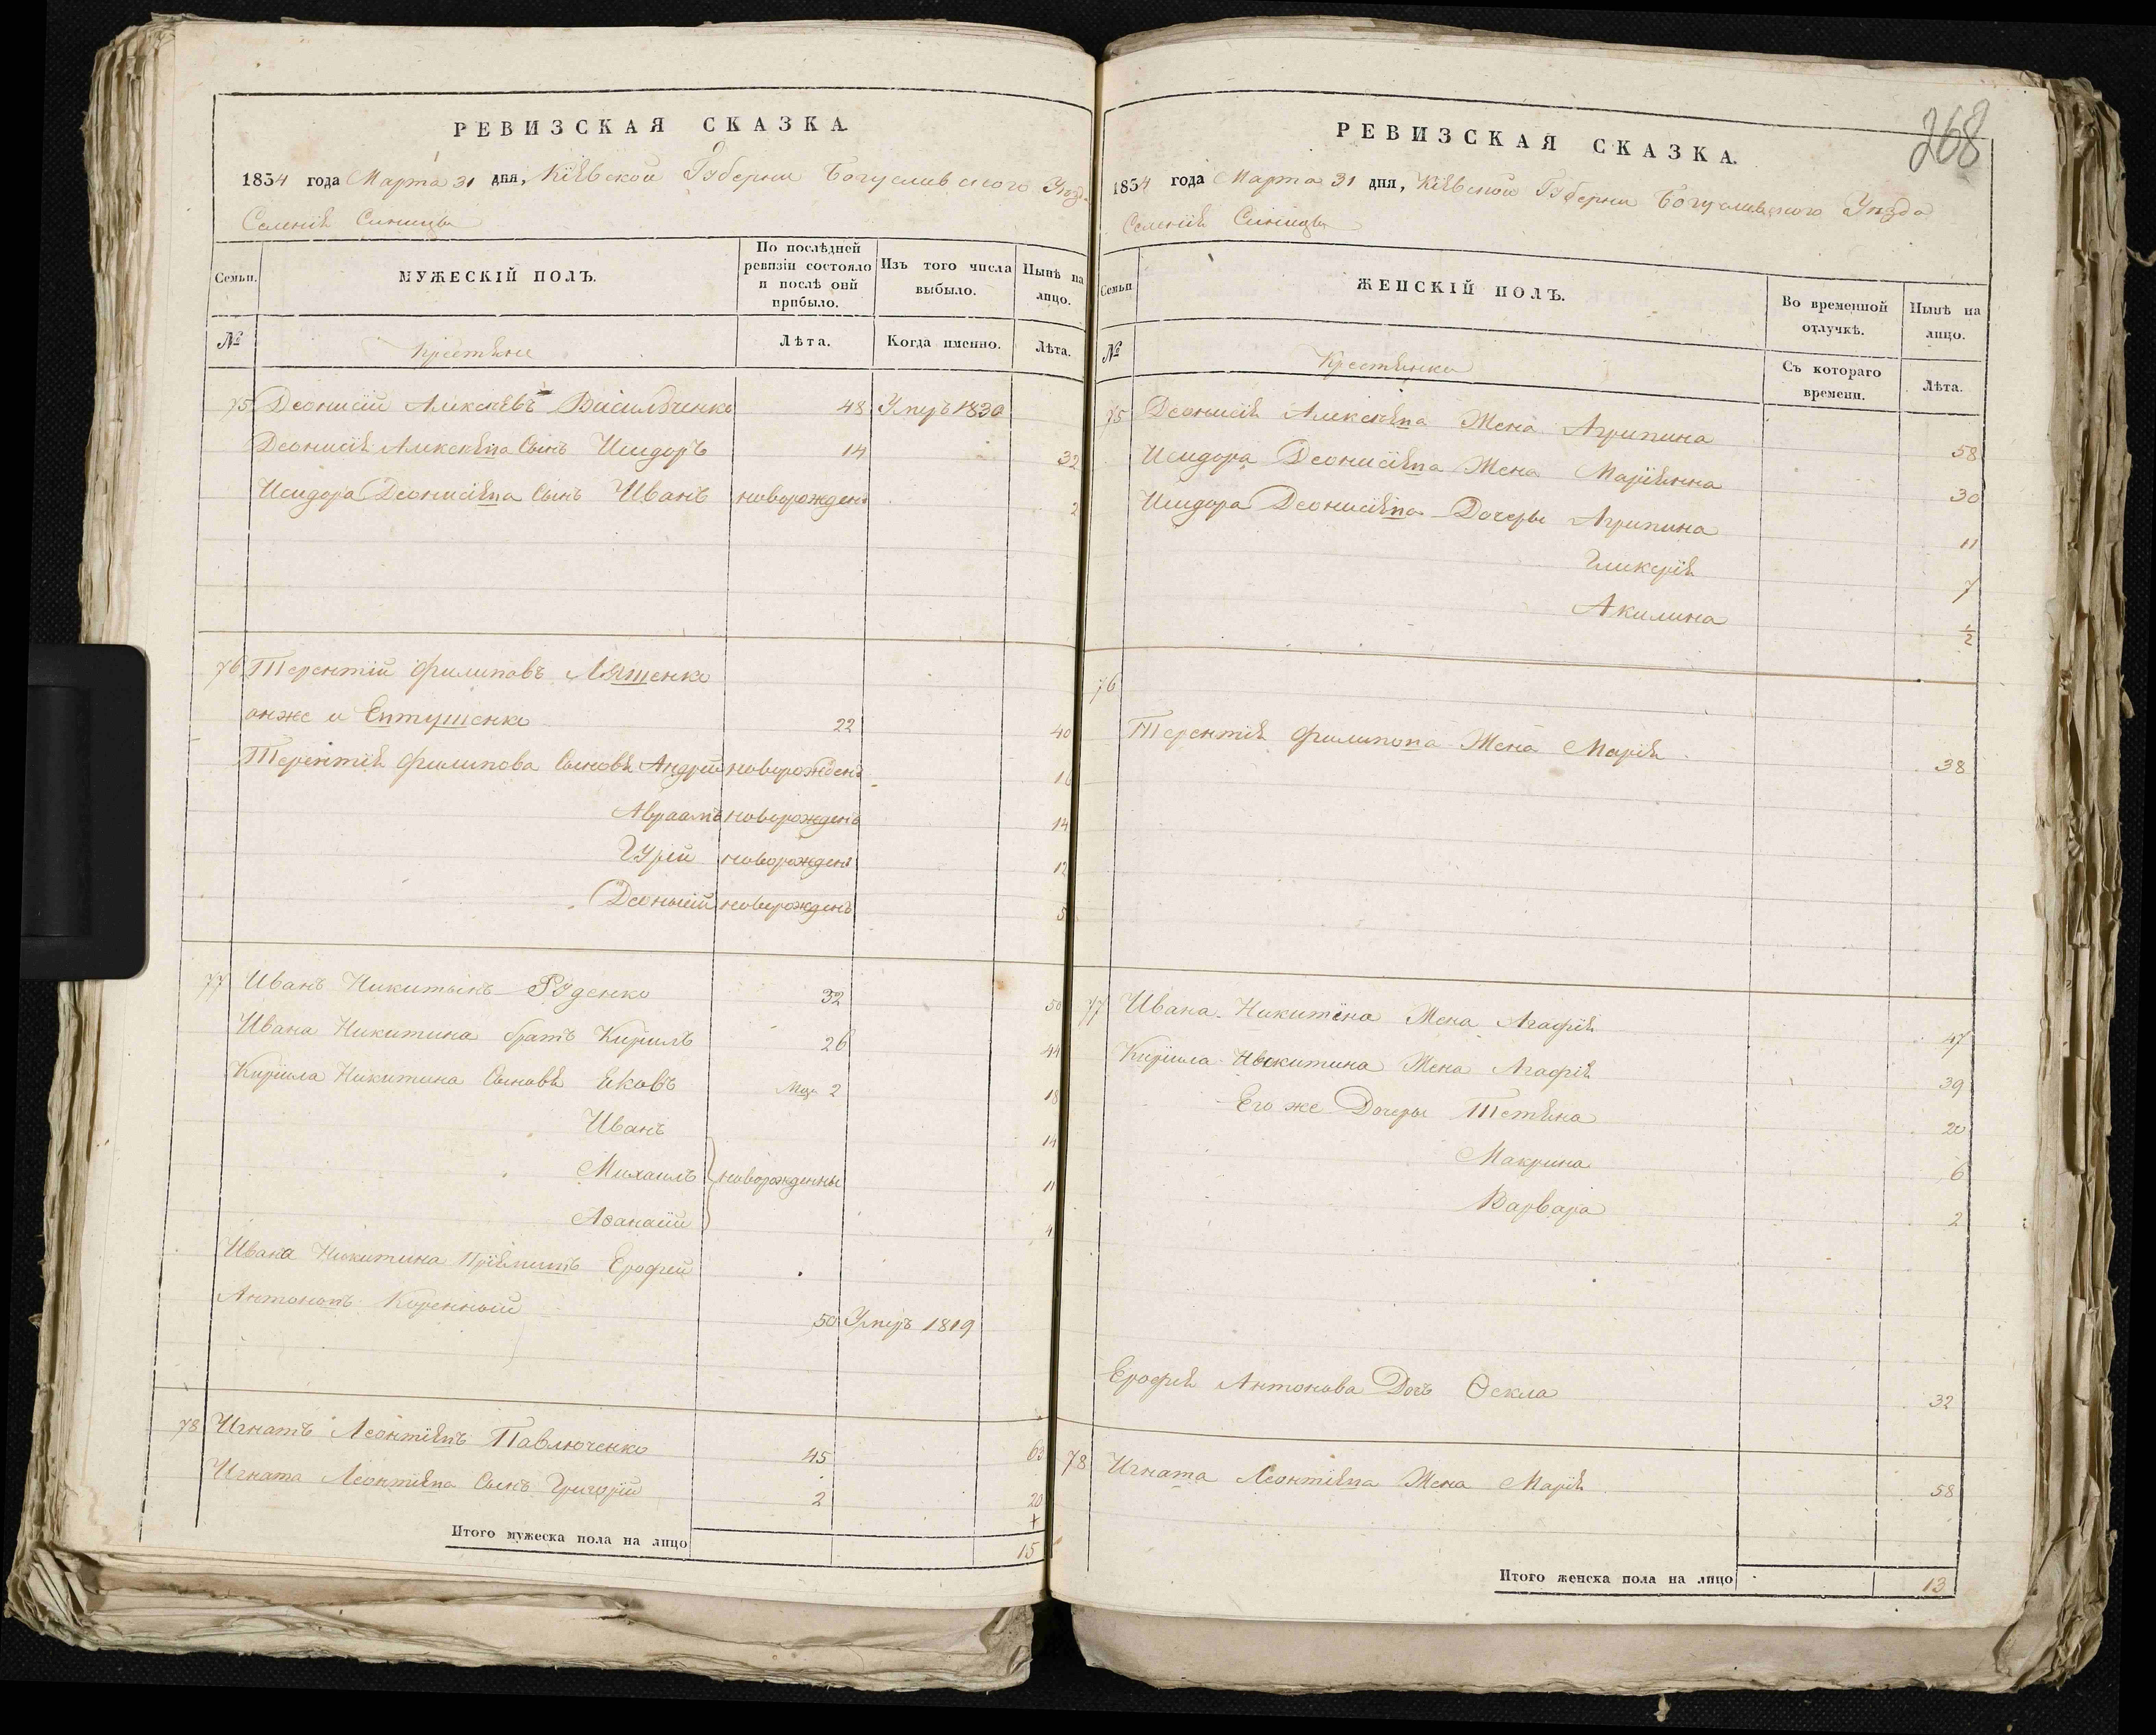 РЕВИЗСКАЯ СКАЗКА.
1834 года Марта 31 дня, Кіевской Губерни Богуславского Уезд.
Селеніе Синицы
Семьи.
МУЖЕСКІЙ ПОЛЪ.
По послѣдней ревизіи состояло и послѣ оной прибыло.
Изъ того числа выбыло.
Нынѣ на лицо.
№
Крестяне
Лѣта.
Когда именно.
Лѣта.
75 Деонисій Алексѣевъ Васильченко 48 Умеръ 1830
Деонисія Алексѣева Сынъ Исидоръ 14 32
Исидора Деонисіева Сынъ Иванъ новорожденъ 2
76 Терентій Филиповъ Ляшенко
онже и Евтушенко 22 40
Терентія Филипова Сыновя Андрей новорожденъ 16
Авраамъ новорожденъ 14
Гурій новорожденъ 12
Деонисій новорожденъ 5
77 Иванъ Никитынъ Руденко 32 50
Ивана Никитина братъ Кирилъ 26 44
Кирила Никитина Сыновя Яковъ Мця 2 18
Иванъ 14
Михаилъ новорожденны 11
Афанасій 4
Ивана Никитина Пріемышъ Ерофей
Антоновъ Коренный 50 Умеръ 1819
78 Игнатъ Леонтіевъ Павлюченко 45 63
Игната Леонтіева Сынъ Григорій 2 20
Итого мужеска пола на лицо 15
268
РЕВИЗСКАЯ СКАЗКА.
1834 года Марта 31 дня, Кіевской Губерни Богуславского Уезда
Селеніе Синицы
Семьи
ЖЕНСКІЙ ПОЛЪ.
Во временной отлучкѣ.
Нынѣ на лицо.
№
Крестянки
Съ котораго времени.
Лѣта.
75 Деонисія Алексѣева Жена Агрипина 58
Исидора Деонисіева Жена Маріянна 30
Исидора Деонисіева Дочеры Агрипина 11
Гликерія 7
Акилина ½
76
Терентія Филипова Жена Марія 38
77 Ивана Никитина Жена Агафія 47
Кирила Никитина Жена Агафія 39
Его же Дочеры Тетяна 20
Макрина 6
Варвара 2
Ерофея Антонова Дочъ Ѳекла 32
78 Игната Леонтіева Жена Марія 58
Итого женска пола на лицо 13